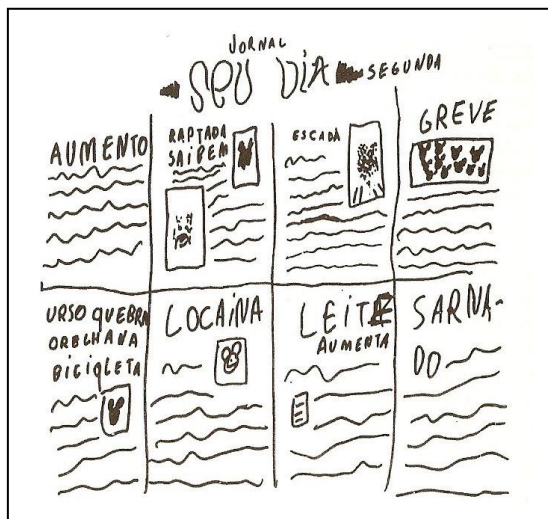 JORNAL
SEU DIA
SEGUNDA
AUMENTO
RAPTADA
SAIPEM
ESCADA
GREVE
URSO QUEBRA
ORELHA NA
BICICLETA
LOCAINA
LEITE
AUMENTA
SARNA-
DO